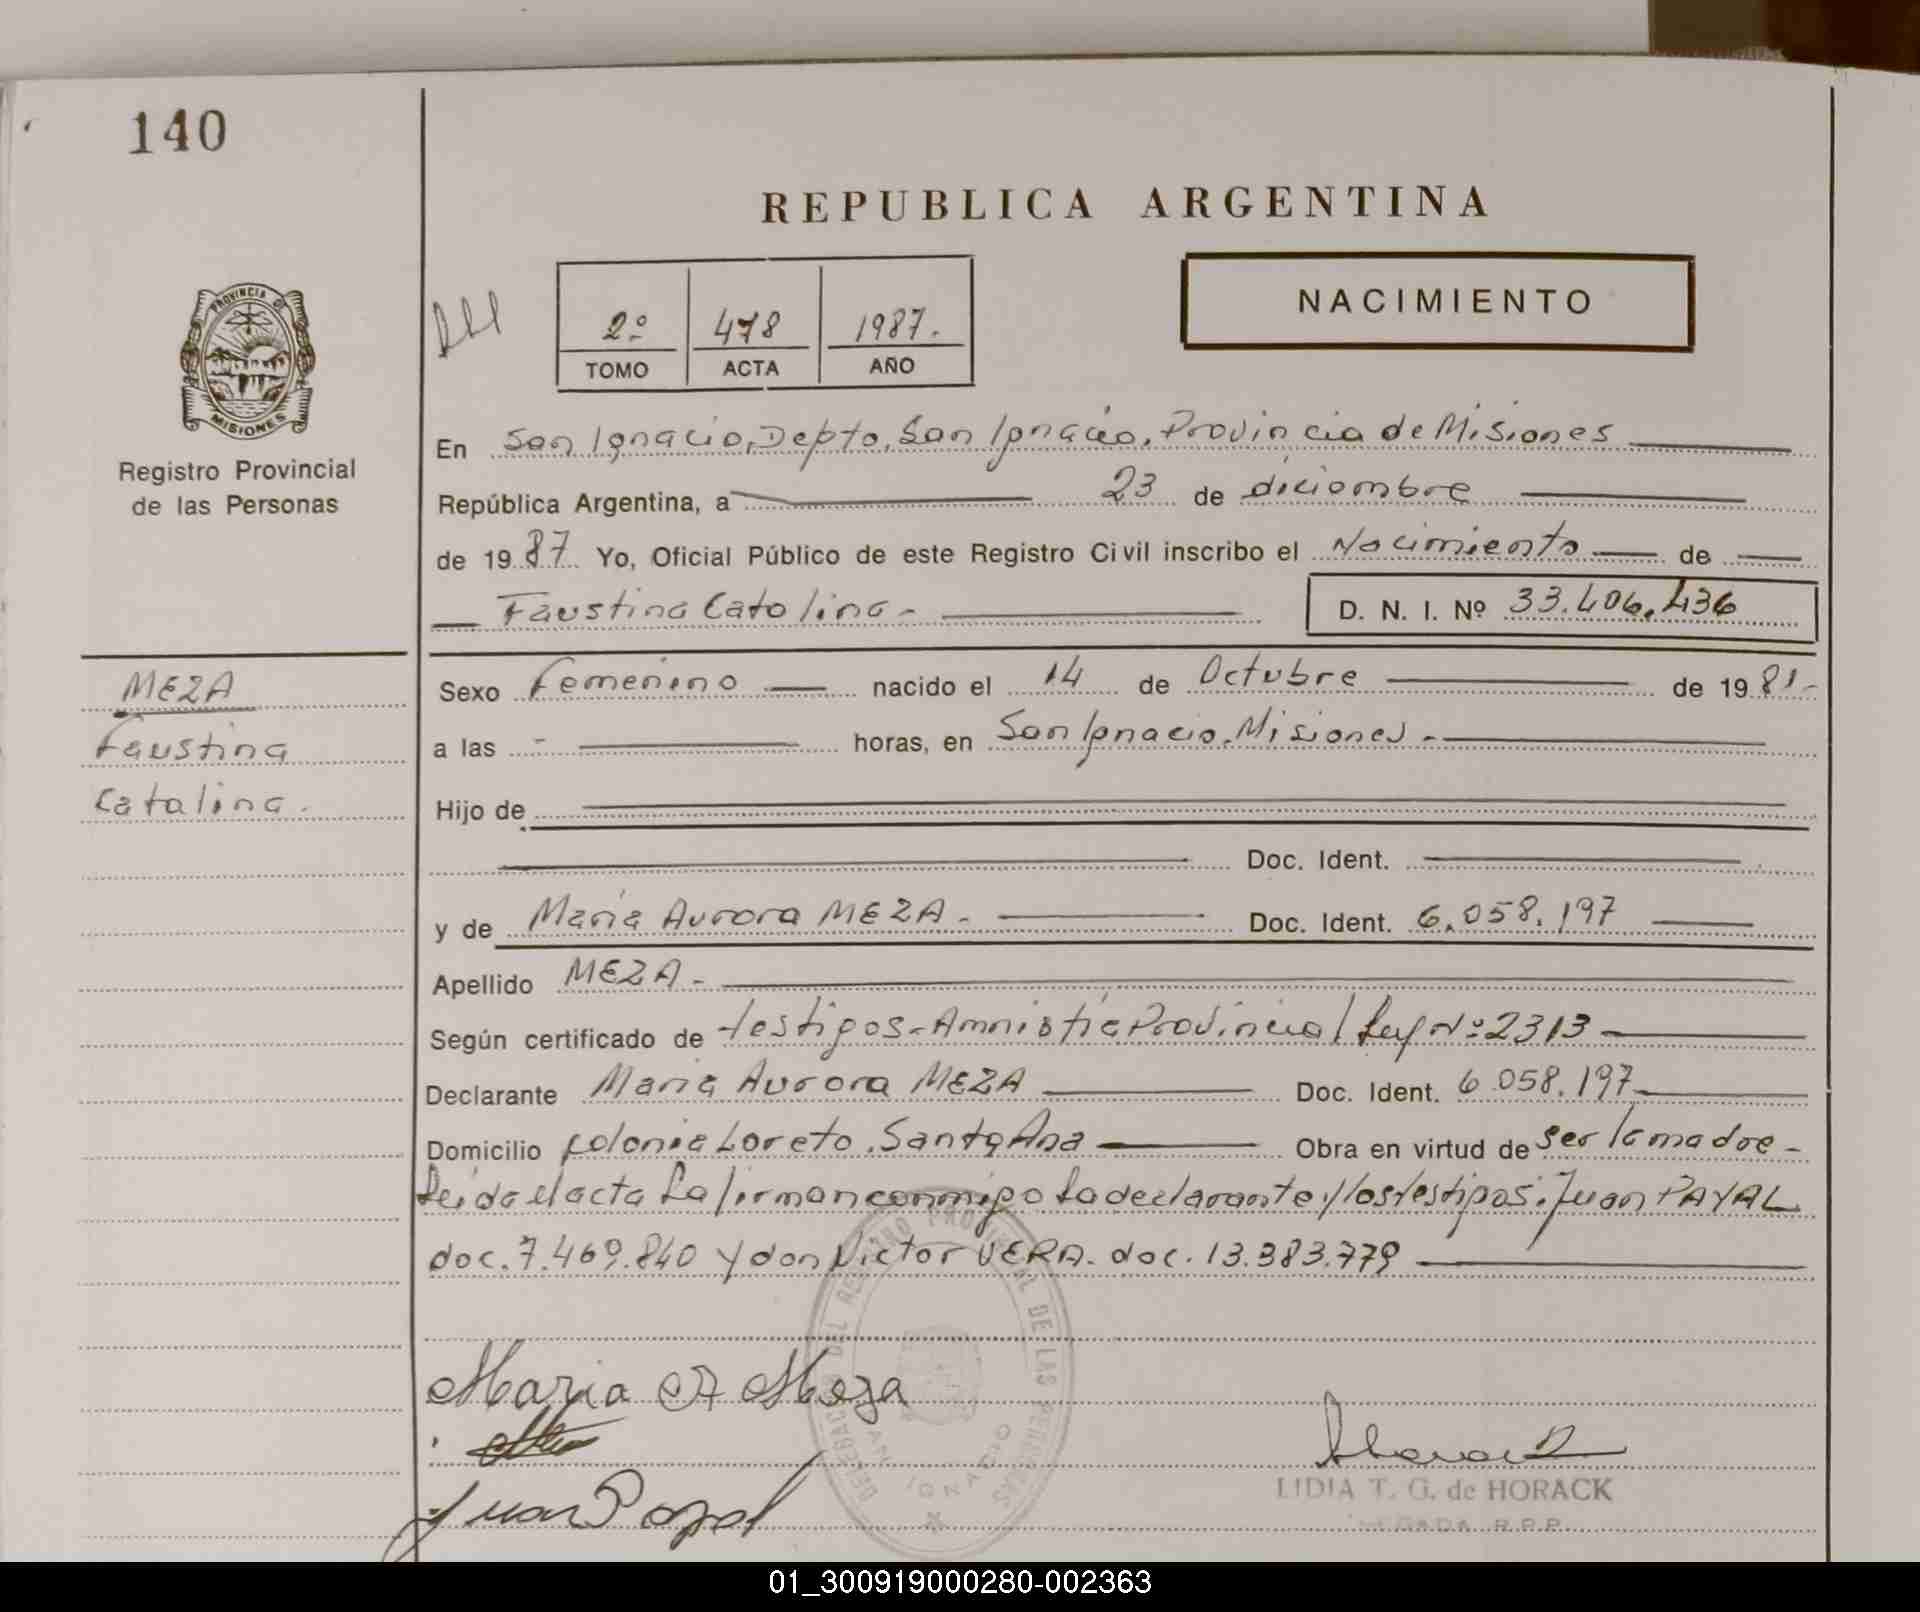 140
REPUBLICA ARGENTINA
2º 478 1987.
TOMO ACTA AÑO
NACIMIENTO
PROVINCIA DE
MISIONES
Registro Provincial
de las Personas
En San Ignacio, Depto, San Ignacio, Provincia de Misiones
República Argentina, a 23 de diciembre
de 1987 Yo, Oficial Público de este Registro Civil inscribo el Nacimiento de
Faustina Catalina - D. N. I. Nº 33.406.436
MEZA
Faustina
Catalina.
Sexo Femenino nacido el 14 de Octubre de 1981-
a las - horas, en San Ignacio. Misiones -
Hijo de
Doc. Ident.
y de Maria Aurora MEZA - Doc. Ident. 6.058.197
Apellido MEZA -
Según certificado de testigos - Amnistia Provincial Ley Nº 2313 -
Declarante Maria Aurora MEZA Doc. Ident. 6.058.197
Domicilio Colonia Loreto. Santa Ana Obra en virtud de ser la madre -
Leida el acta La firman conmigo La declarante y los testigos: Juan PAYAL
doc. 7.469.840 y don Victor VERA. doc. 13.383.779
DELEGACION DEL REGISTRO PROVINCIAL DE LAS PERSONAS
SAN IGNACIO
Maria A Meza
Juan Payal
LIDIA T. G. de HORACK
R.P.P.
01_300919000280-002363